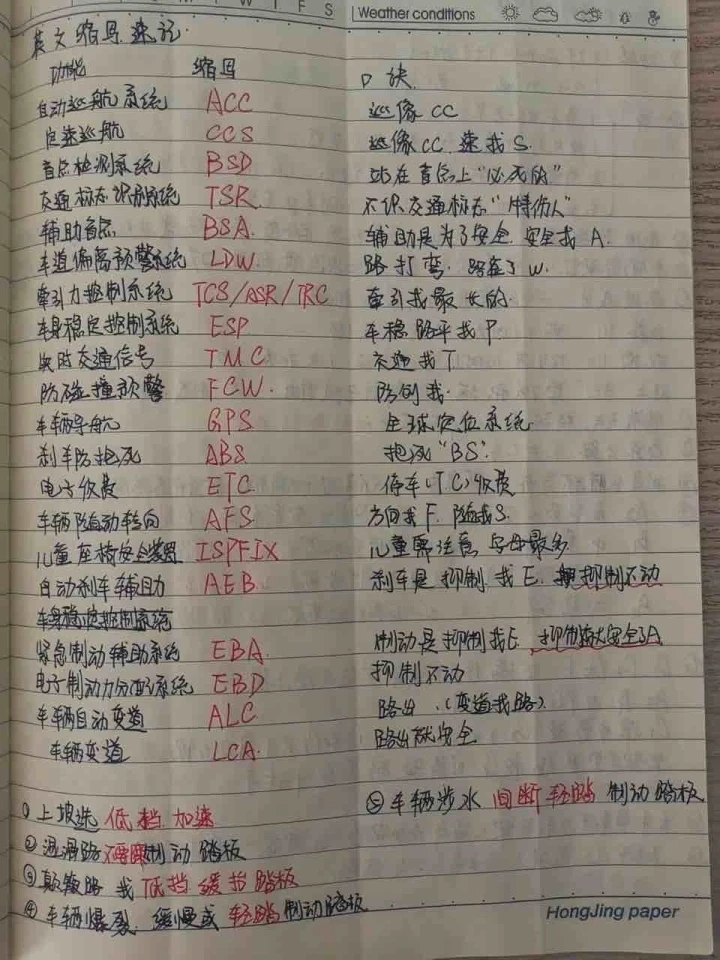 M T W T F S Weather conditions
英文缩写速记
功能 缩写 口诀
自动巡航系统 ACC 巡像CC
定速巡航 CCS 巡像CC 速找S.
盲点检测系统 BSD 站在盲点上“必死的”
交通标志识别系统 TSR 不识交通标志“特伤人”
辅助盲点 BSA. 辅助是为了安全.安全找A.
车道偏离预警系统 LDW. 路打弯.路在了W.
牵引力控制系统 TCS/ASR/TRC 牵引找最长的.
车身稳定控制系统 ESP 车稳路平找P
实时交通信号 TMC 交通找T
防碰撞预警 FCW. 防创我.
车辆导航 GPS 全球定位系统
刹车防抱死 ABS 抱死“BS”.
电子收费 ETC 停车(TC)收费
车辆随动转向 AFS 方向找F.随找S.
儿童座椅安全装置 ISPFIX 儿童需注意 字母最多
自动刹车辅助 AEB 刹车是抑制找E.抑制不动
车身稳定控制系统
紧急制动辅助系统 EBA. 制动是抑制找E.
电子制动力分配系统 EBD 抑制不动
车辆自动变道 ALC 路出.(变道找路)
车辆变道 LCA. 路出就安全
①上坡选 低档.加速 ⑤车辆涉水 间断轻踏 制动踏板
②湿滑路 制动踏板
③颠簸路 找低挡缓抬踏板
④车辆爆裂.缓慢或 轻踏制动踏板
HongJing paper